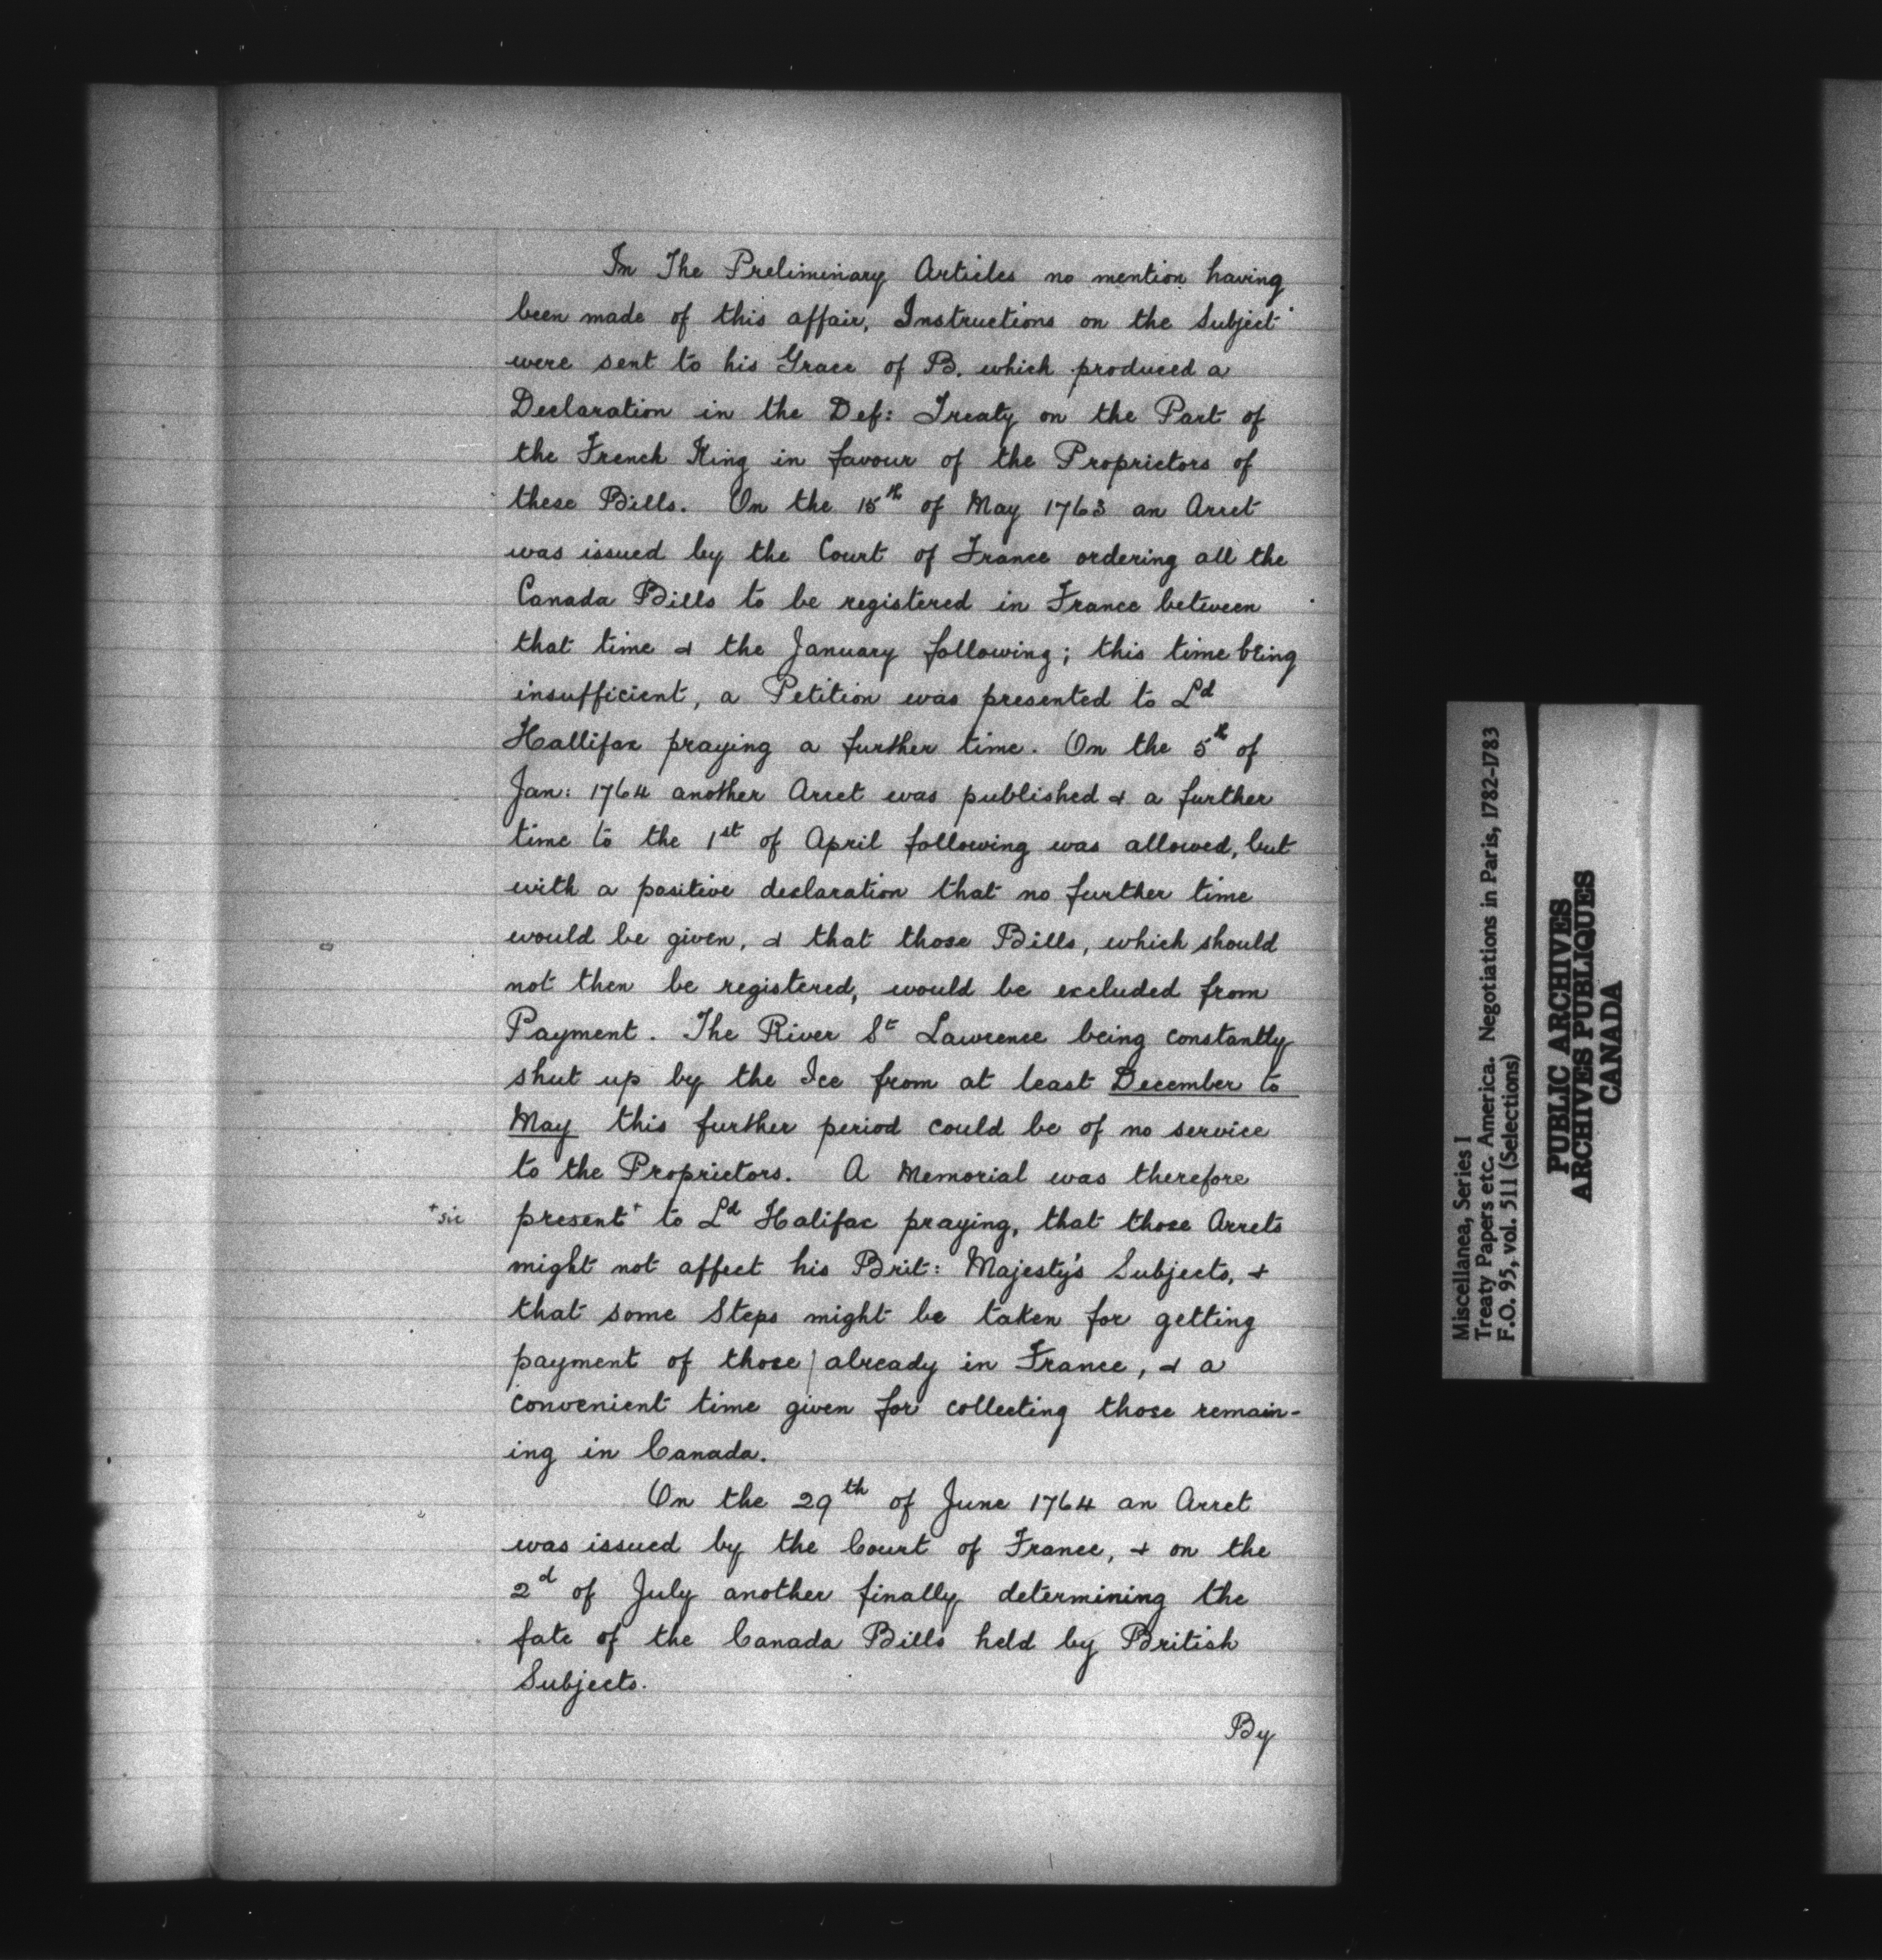 In The Preliminary Articles no mention having
been made of this affair, Instructions on the Subject
were sent to his Grace of B. which produced a
Declaration in the Def: Treaty on the Part of
the French King in favour of the Proprietors of
these Bills. On the 15th of May 1763 an Arret
was issued by the Court of France ordering all the
Canada Bills to be registered in France between
that time & the January following; this time being
insufficient, a Petition was presented to Ld
Hallifax praying a further time. On the 5th of
Jan: 1764 another Arret was published & a further
time to the 1st of April following was allowed, but
with a positive declaration that no further time
would be given, & that those Bills, which should
not then be registered, would be excluded from
Payment. The River St Lawrence being constantly
shut up by the Ice from at least December to
May this further period could be of no service
to the Proprietors. A Memorial was therefore
+sic present+ to Ld Halifax praying, that those Arrets
might not affect his Brit: Majesty's Subjects, &
that some Steps might be taken for getting
payment of those already in France, & a
convenient time given for collecting those remain-
ing in Canada.
On the 29th of June 1764 an Arret
was issued by the Court of France, & on the
2d of July another finally determining the
fate of the Canada Bills held by British
Subjects.
By
Miscellanea, Series I
Treaty Papers etc. America. Negotiations in Paris, 1782-1783
F.O. 95, vol. 511 (Selections)
PUBLIC ARCHIVES
ARCHIVES PUBLIQUES
CANADA